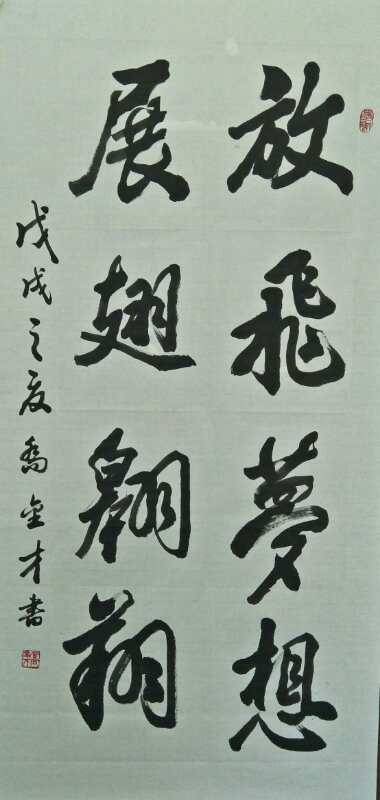 放飛夢想
展翅翱翔
戊戌之夏喬金才書